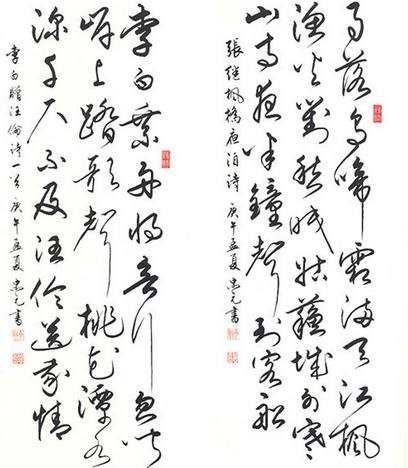 月落烏啼霜滿天江楓
漁火對愁眠姑蘇城外寒
山寺夜半鐘聲到客船
張繼楓橋夜泊詩 庚午孟夏 忠元書
李白乘舟將欲行忽聞
岸上踏歌聲桃花潭水
深千尺不及汪倫送我情
李白贈汪倫詩一首 庚午孟夏 忠元書